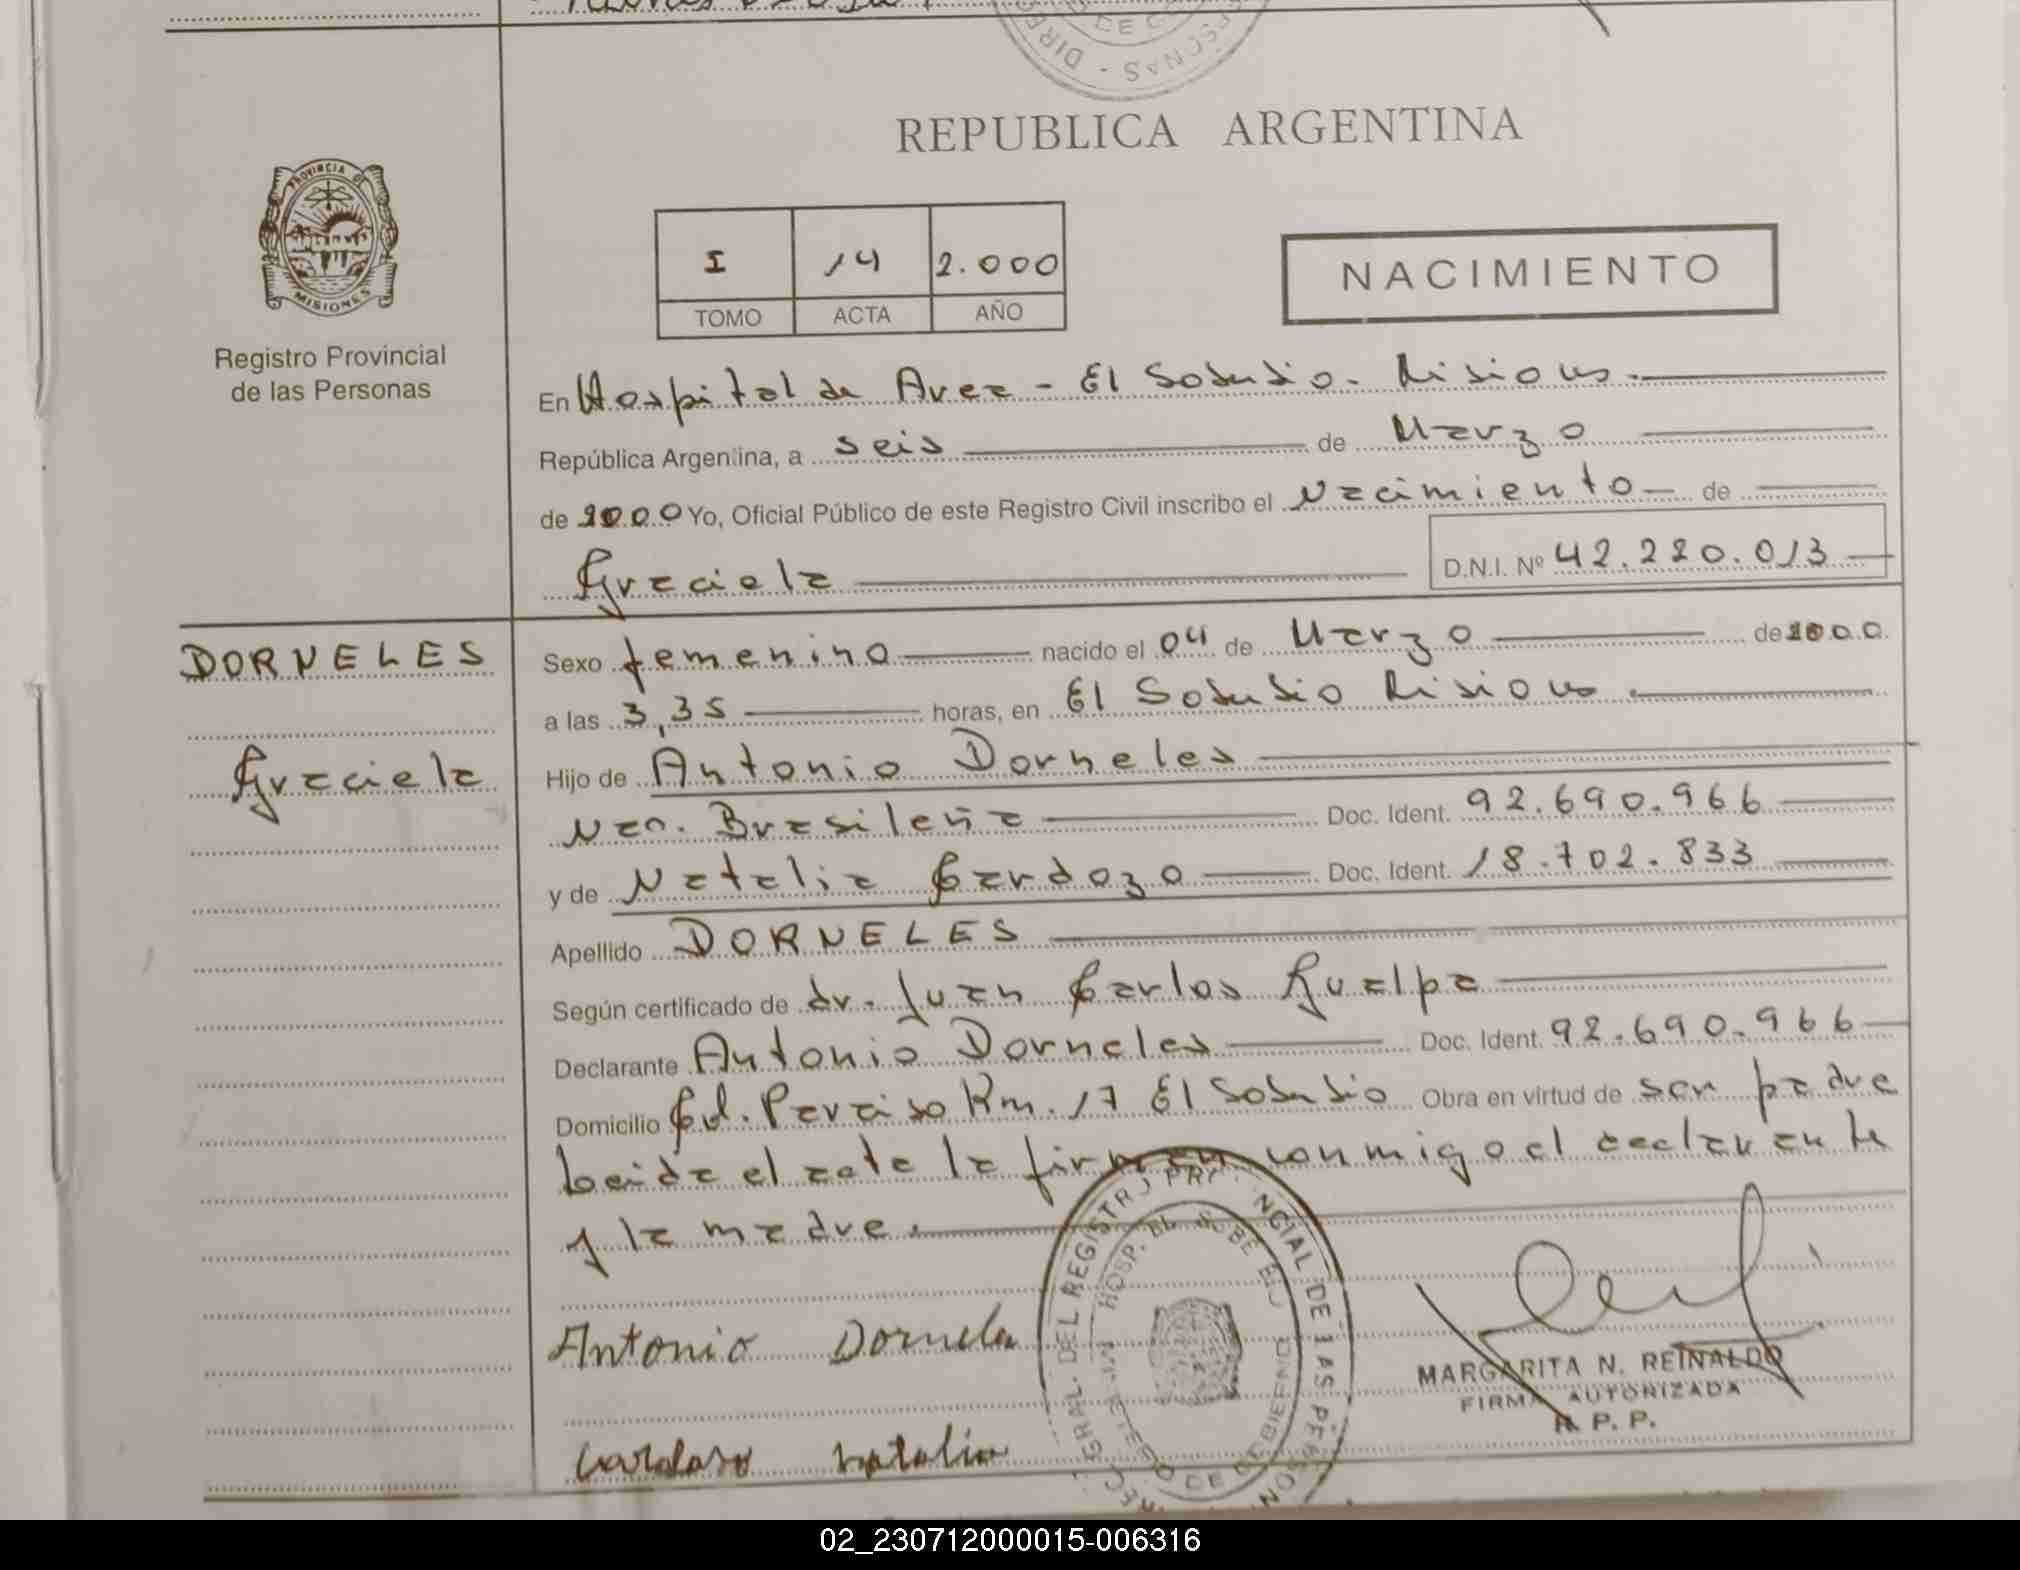 REPUBLICA ARGENTINA
PROVINCIA DE
MISIONES
Registro Provincial
de las Personas
I 14 2.000
TOMO ACTA AÑO
NACIMIENTO
En Hospital de Area - El Soberbio - Misiones.
República Argentina, a seis de Marzo
de 2000 Yo, Oficial Público de este Registro Civil inscribo el Nacimiento - de
Graciela D.N.I. Nº 42.220.013
DORNELES
Graciela
Sexo femenino nacido el 04 de Marzo de 2000.
a las 3,35 horas, en El Soberbio Misiones.
Hijo de Antonio Dorneles
Nac. Brasileña Doc. Ident. 92.690.966
y de Natalia Cardozo Doc. Ident. 18.702.833
Apellido DORNELES
Según certificado de dr. Juan Carlos Gualpa
Declarante Antonio Dorneles Doc. Ident. 92.690.966
Domicilio Col. Paraiso Km. 17 El Soberbio Obra en virtud de ser padre
Leida el acta la firman conmigo el declarante
y la madre.
Antonio Dorneles
Cardoso Natalia
MARGARITA N. REINALDO
FIRMA AUTORIZADA
R. P. P.
02_230712000015-006316